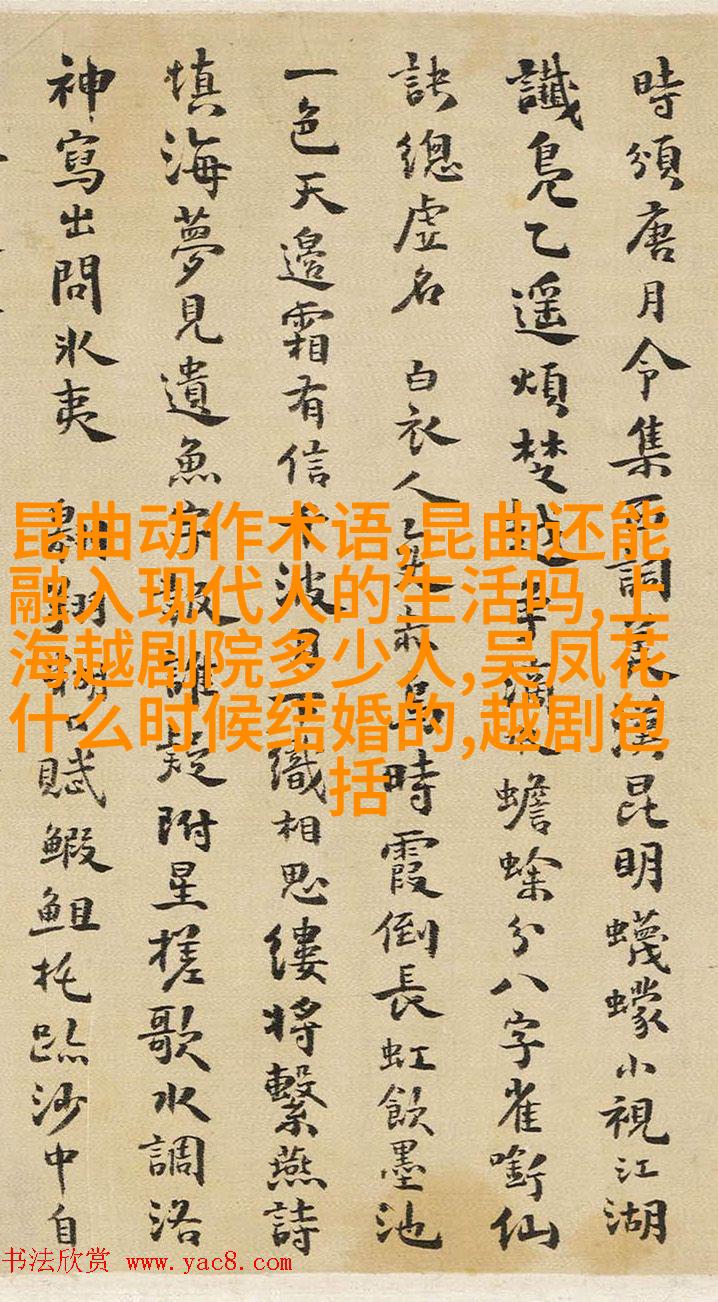 時頒唐月令集詞漢昆明蠛蠓小視江湖
讖鳧乙遥煩楚越蟾蜍分八字雀銜仙
訣總虚名 白衣人時霞倒長虹飲墨池
一色天邊霜有信波織相思縷將繫燕詩
填海夢見遺魚字誰疑附星槎歌水調洛
神寫出問氷夷 賦鰕䱉托跡沙中自
昆曲动作术语,昆曲还能
融入现代人的生活吗,上
海越剧院多少人,吴凤花
什么时候结婚的,越剧包
括
书法欣赏 www.yac8.com